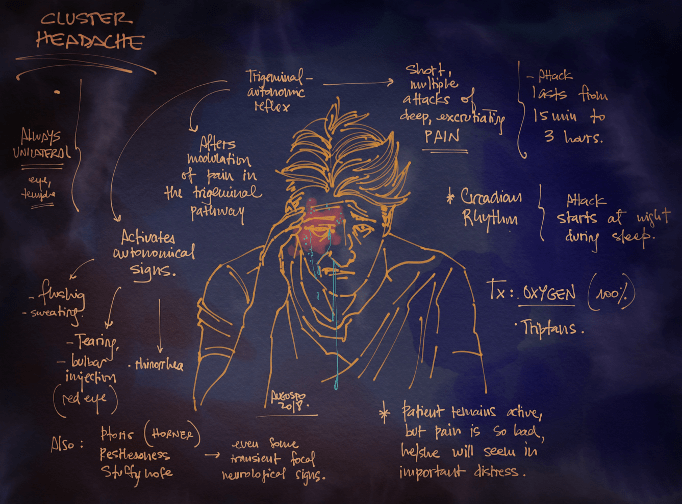 CLUSTER
HEADACHE
ALWAYS
UNILATERAL
eye,
temple
Trigeminal-
autonomic
reflex
Short,
multiple
attacks of
deep, excruciating
PAIN
- Attack
lasts from
15 min to
3 hours.
Alters
modulation
of pain in
the trigeminal
pathway
* Circadian
Rhythm
Attack
starts at night
during sleep.
Activates
autonomical
signs.
- flushig
- sweating
- Tearing
- bulbar
injection
(red eye)
· rhinorrhea
Tx: OXYGEN (100%)
· Triptans.
AUGOSPO
2018.
Also: Ptosis (HORNER)
Restlessness
Stuffy nose
→ even some
transient focal
neurological signs.
* Patient remains active,
but pain is so bad,
he/she will seem in
important distress.